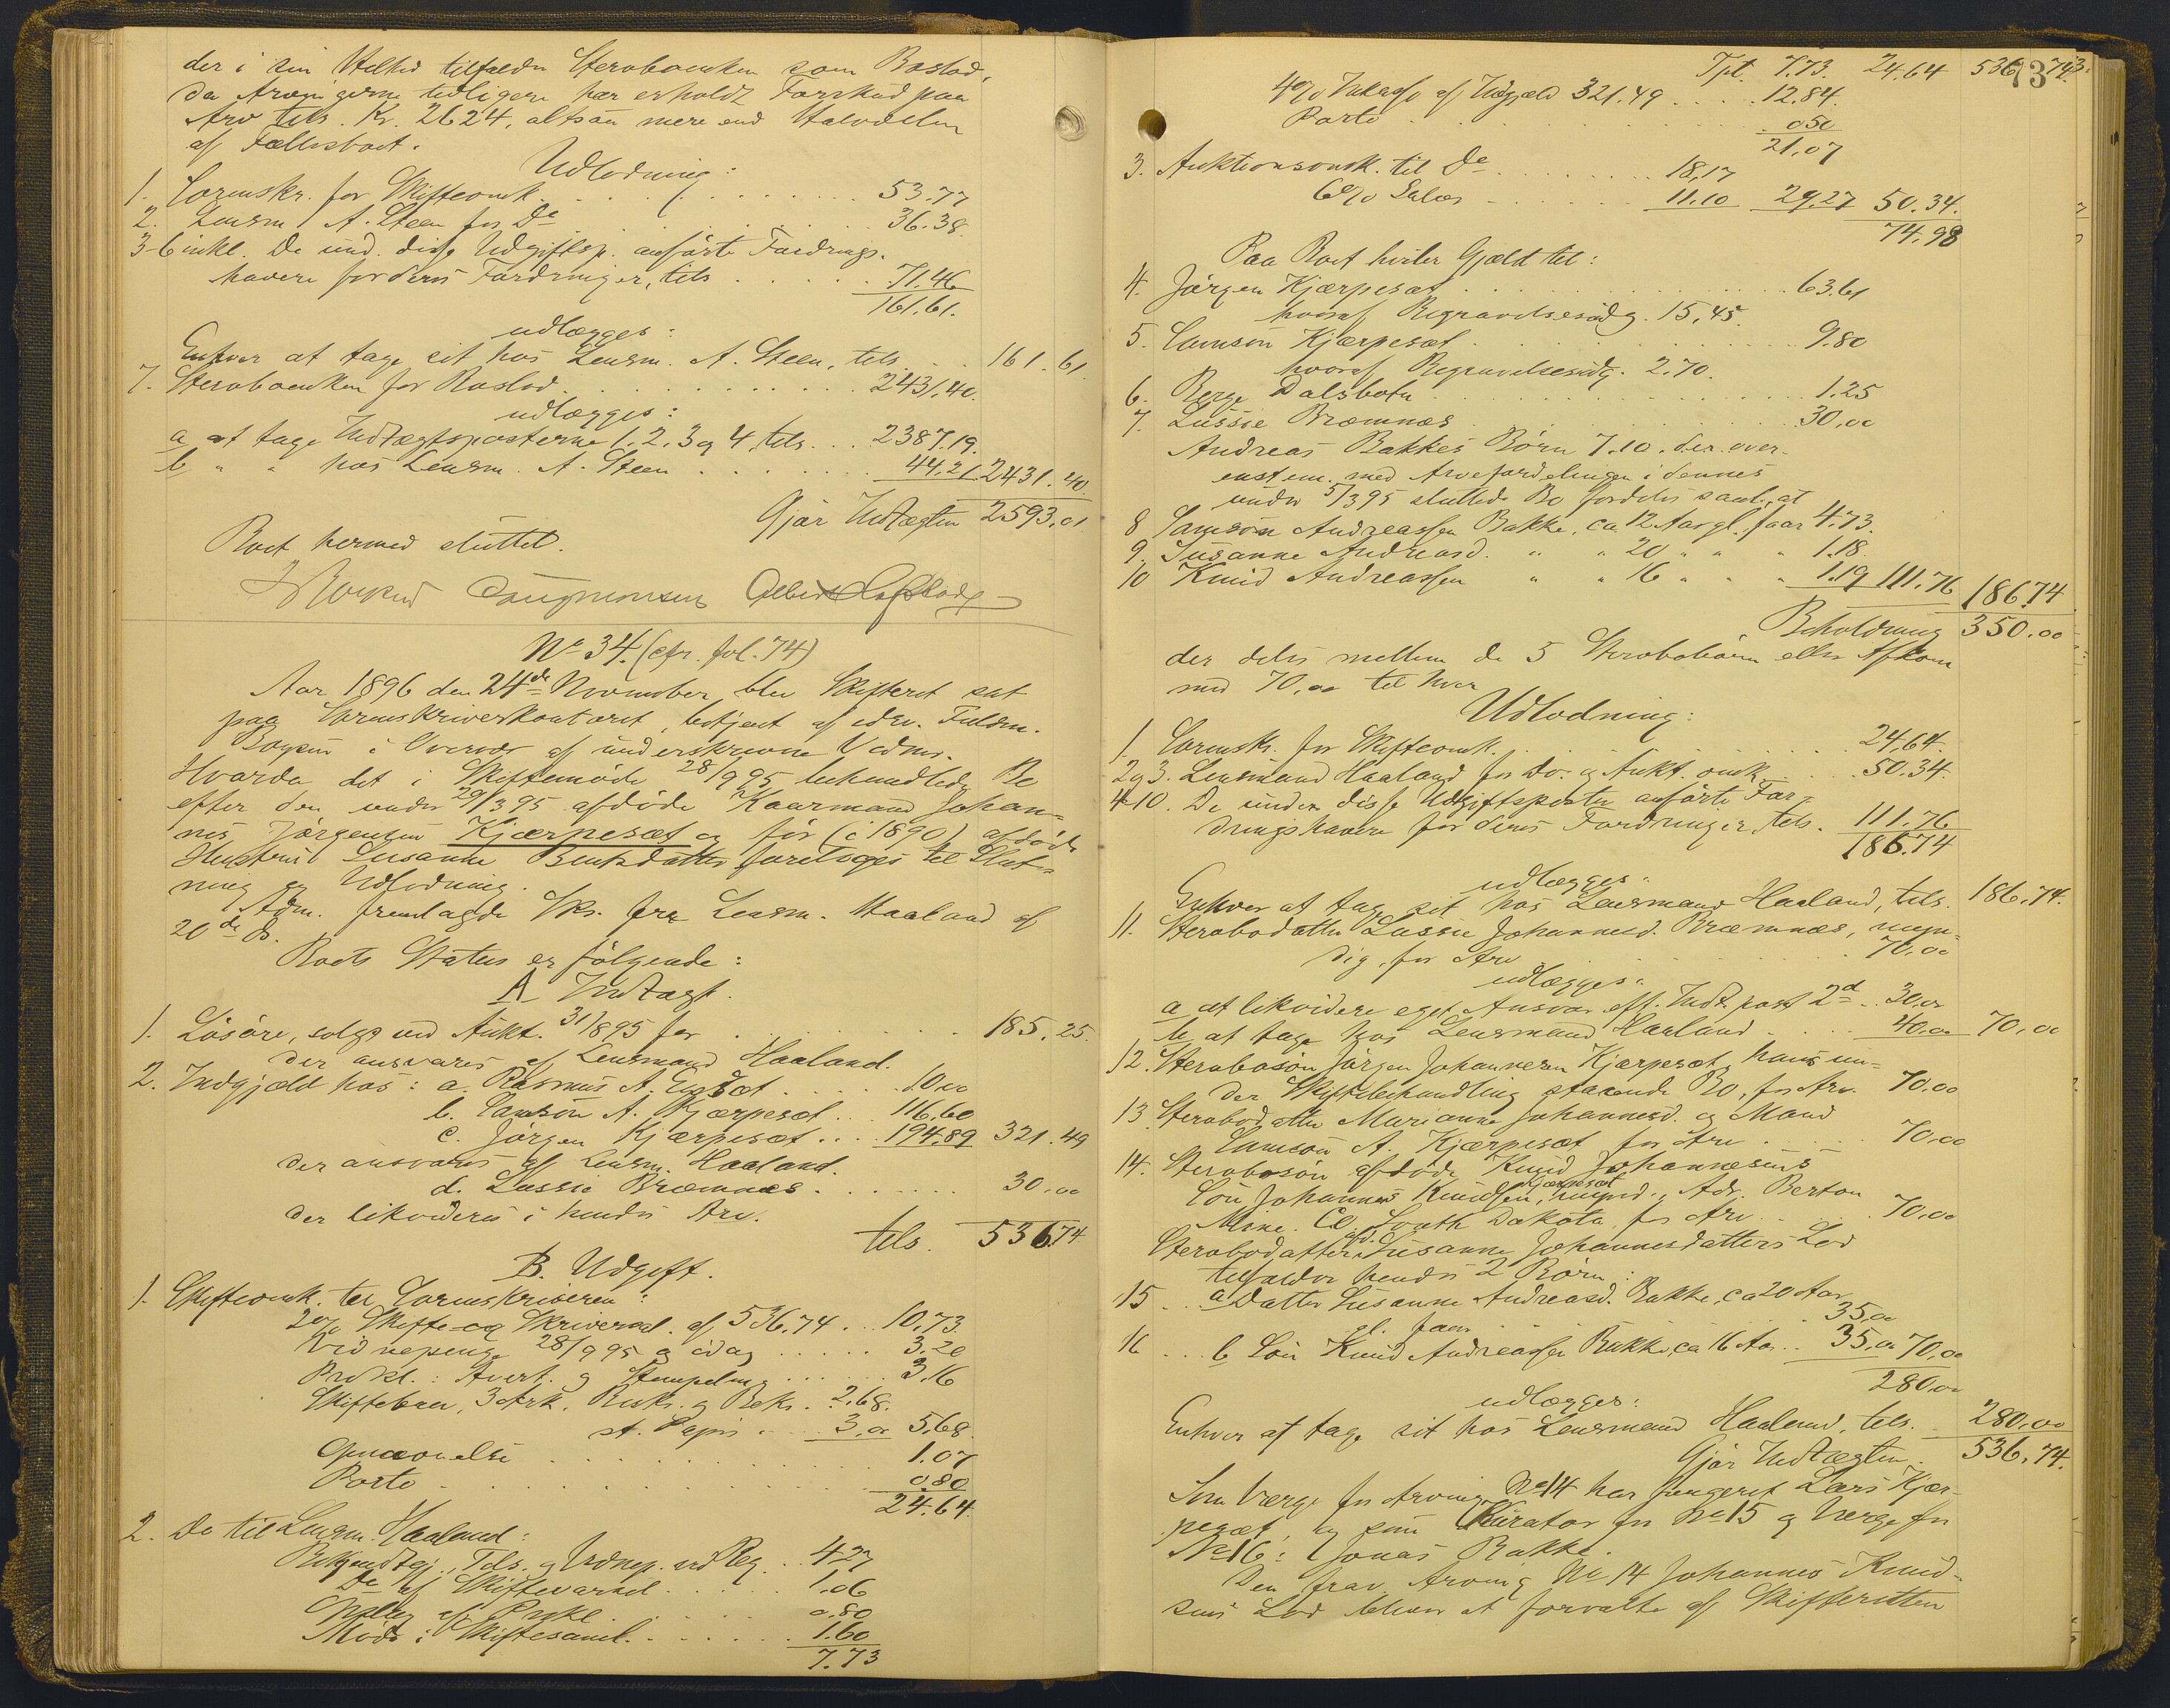 der i sin Helhed tilfalder Sterboenken som Boslod,
da Arvingerne tidligere har erholdt Forskud paa
Arv tils. Kr. 2624, altsaa mere end Halvdelen
af Fællesboet.
Udlodning:
1. Sorenskr. for Skifteomk. . . . . . . . 53.77
2. Lensm. A. Steen for Do . . . . . 36.38
3-6 inkl. De und. disse Udgiftsp. anførte Fordrings-
havere for deres Fordringer, tils . . . . . 71.46
161.61.
udlægges:
Enhver at tage sit hos Lensm. A. Steen, tils. . . 161.61
7. Sterboenken for Boslod . . . . . . 2431.40.
udlægges:
a at tage Indtægtsposterne 1. 2. 3 og 4, tils. . . 2387.19.
b " " hos Lensm. A. Steen . . . . . . 44.21 2431.40
Gjør Indtægten 2593.01
Boet hermed sluttet.
No 34. (cfr. fol. 74)
Aar 1896 den 24de November blev Skifteret sat
paa Sorenskriverkontoret, betjent af edsv. Fuldm.
i Overvær af underskrevne Vidner.
Hvorda det i Skiftemøde 28/9 95 behandlede Bo
efter den under 29/3 95 afdøde Kaarmand Johan-
nes Jørgensen Kjærpesæt og før (i 1890) afdøde
Hustru Susanne Bentsdatter foretoges til Slut-
ning og Udlodning.
Adm. fremlagde Skr. fra Lensm. Haaland af
20de ds.
Boets Status er følgende:
A Indtægt.
1. Løsøre, solgt ved Aukt. 31/8 95 for . . . . . . 185.25.
der ansvares af Lensmand Haaland.
2. Indgjæld hos: a. Rasmus A. . . . . 10.00
b. Samson A. Kjærpesæt . . 116.60
c. Jørgen Kjærpesæt . . . 194.89 321.49
der ansvares af Lensm. Haaland.
d. Lussie Bræmnæs . . . . . . 30.00
der likvideres i hendes Arv.
tils. 536.74
B. Udgift.
1. Skifteomk. til Sorenskriveren:
2% Skifte- og Skriversal. af 536.74 . . 10.73
Vidnepenge 28/9 95 og idag . . . . . 3.20
Prokl.: Avert. og Stempling . . . . . 3.16
Skiftebrev, 3 Ark, Besk. og Bekr. . 2.68.
st. Papir . . . 3.00 5.68.
. . . . . . . . 1.07
Porto . . . . . . . . 0.80
24.64.
2. Do til Lensm. Haaland:
Bekjendtgj., Tils. og Vidnep. ved Reg. . . 4.27
Do af Skiftevarsel . . . . . 1.06
af Prokl. . . . . . 0.80
Møde i Skiftesaml. . . . . . 1.60
7.73
73
Tpt. 7.73. 24.64 536.74
4% Inkasso af Indgjæld 321.49 . . . . 12.84.
Porto . . . . . . . . 0.50
21.07
3. Auktionsomk. til Do . . . . . . 18.17
6% Salær . . . . . 11.10 29.27 50.34.
74.98
Paa Boet hviler Gjæld til:
4. Jørgen Kjærpesæt . . . . . . . 63.61
hvoraf Begravelsesudg. 15.45.
5. Samson Kjærpesæt . . . . . . 9.80
hvoraf Begravelsesudg. 2.70.
6. Berge Dalsbotn . . . . . . . 1.25
7. Lussie Bræmnæs . . . . . . 30.00
Andreas Bakkes Børn 7.10. der over-
enstem. med Arvefordelingen i dennes
under 5/3 95 sluttede Bo fordeles saal., at
8 Samson Andreassen Bakke, ca. 12 Aar gl. faar 4.73.
9. Susanne Andreasd. " " 20 " " " 1.18.
10 Knud Andreassen " " 16 " " " 1.19 111.76 186.74
Beholdning 350.00
der deles mellem de 5 Sterbobørn eller Afkom
med 70.00 til hver
Udlodning:
1. Sorenskr. for Skifteomk. . . . . . . . 24.64.
2 og 3. Lensmand Haaland for Do. og Aukt. omk. . . . 50.34.
4-10. De under disse Udgiftsposter anførte For-
dringshavere for deres Fordringer, tils. . 111.76
186.74
udlægges:
Enhver at tage sit hos Lensmand Haaland, tils. 186.74.
11. Sterbodatter Lussie Johannesd. Bræmnæs, myn-
dig, for Arv . . . . . . . 70.00
udlægges:
a at likvidere eget Ansvar eft. Indt. post 2d . . 30.00
b at tage hos Lensmand Haaland . . . . 40.00 70.00
12. Sterbosøn Jørgen Johannesen Kjærpesæt, hans un-
der Skiftebehandling staaende Bo, for Arv. 70.00
13 Sterbodatter Marianne Johannesd. og Mand
Samson A. Kjærpesæt for Arv . . . . . 70.00
14. Sterbosøn afdøde Knud Johannesens
Søn Johannes Knudsen Kjærpesæt, mynd., Adr. Berton
Mine. Co. South Dakota, for Arv . . . . 70.00
Sterbodatter afd. Susanne Johannesdatters Lod
tilfalder hendes 2 Børn:
15 . . a Datter Susanne Andreasd. Bakke, ca 20 Aar
gl. faar . . . . . . . 35.00
16 . . . b Søn Knud Andreassen Bakke, ca 16 Aar . . 35.00 70.00
280.00
udlægges:
Enhver at tage sit hos Lensmand Haaland, tils. . 280.00
Gjør Indtægten. 536.74.
Som Værge for Arving No 14 har fungeret Lars Kjær-
pesæt, og som Kurator for No 15 og Værge for
No 16: Jonas Bakke.
Den frav. Arving No 14 Johannes Knud-
sens Lod bliver at forvalte af Skifteretten